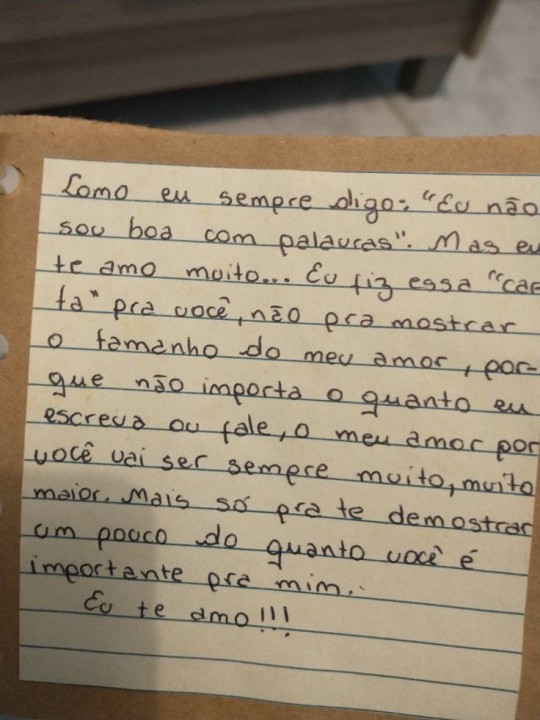 Como eu sempre digo: "Eu não
sou boa com palavras". Mas eu
te amo muito... Eu fiz essa "car
ta" pra você, não pra mostrar
o tamanho do meu amor, por-
que não importa o quanto eu
escreva ou fale, o meu amor por
você vai ser sempre muito, muito
maior. Mais só pra te demostrar
um pouco do quanto você é
importante pra mim.
Eu te amo!!!